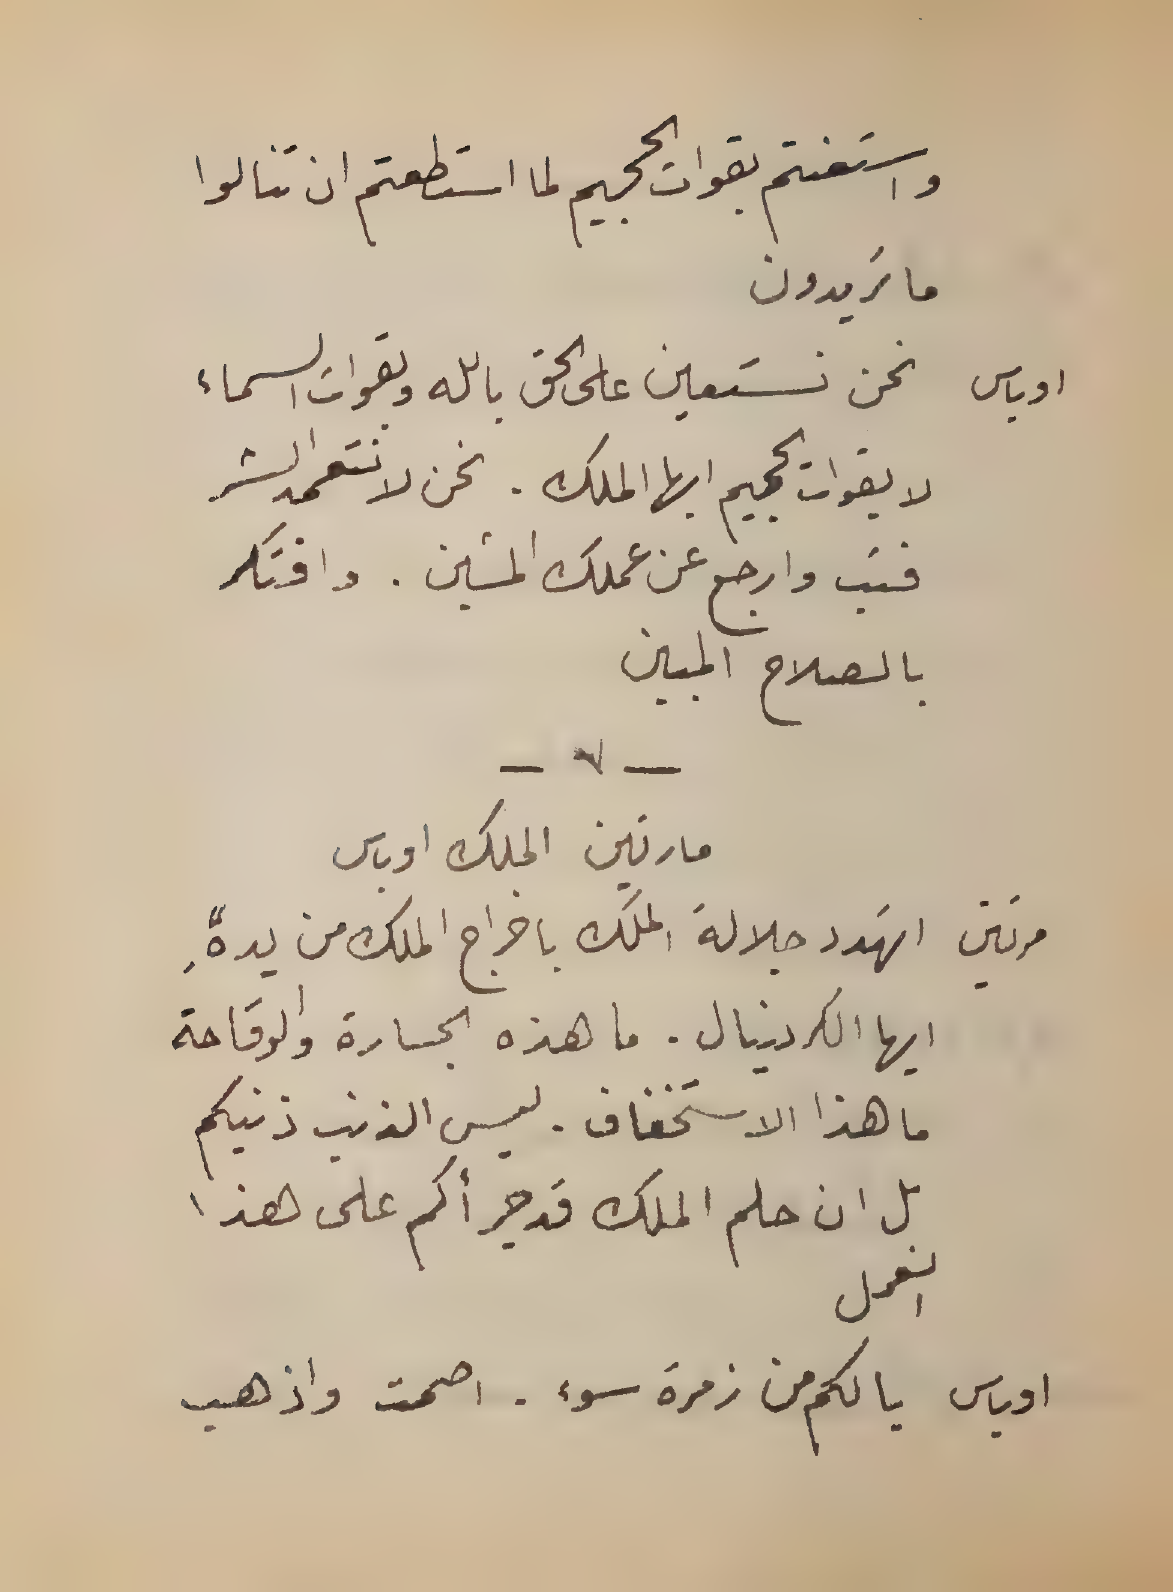 واستعنتم بقوات الجحيم لما استطعتم ان تنالوا
ما تريدون
اوباس نحن نستعين على الحق بالله وبقوات السماء
لا بقوات الجحيم ايها الملك . نحن لا نتعمد الشر
فتب وارجع عن عملك المشين . وافتكر
بالصلاح المبين
مارتين الملك اوباس
مرتين اتهدد جلالة الملك باخراج الملك من يده
ايها الكردينال . ما هذه الجسارة والوقاحة
ما هذا الاستخفاف . ليس الذنب ذنبكم
بل ان حلم الملك قد جرأكم على هذا
العمل
اوباس يا لكم من زمرة سوء . اصمت واذهب